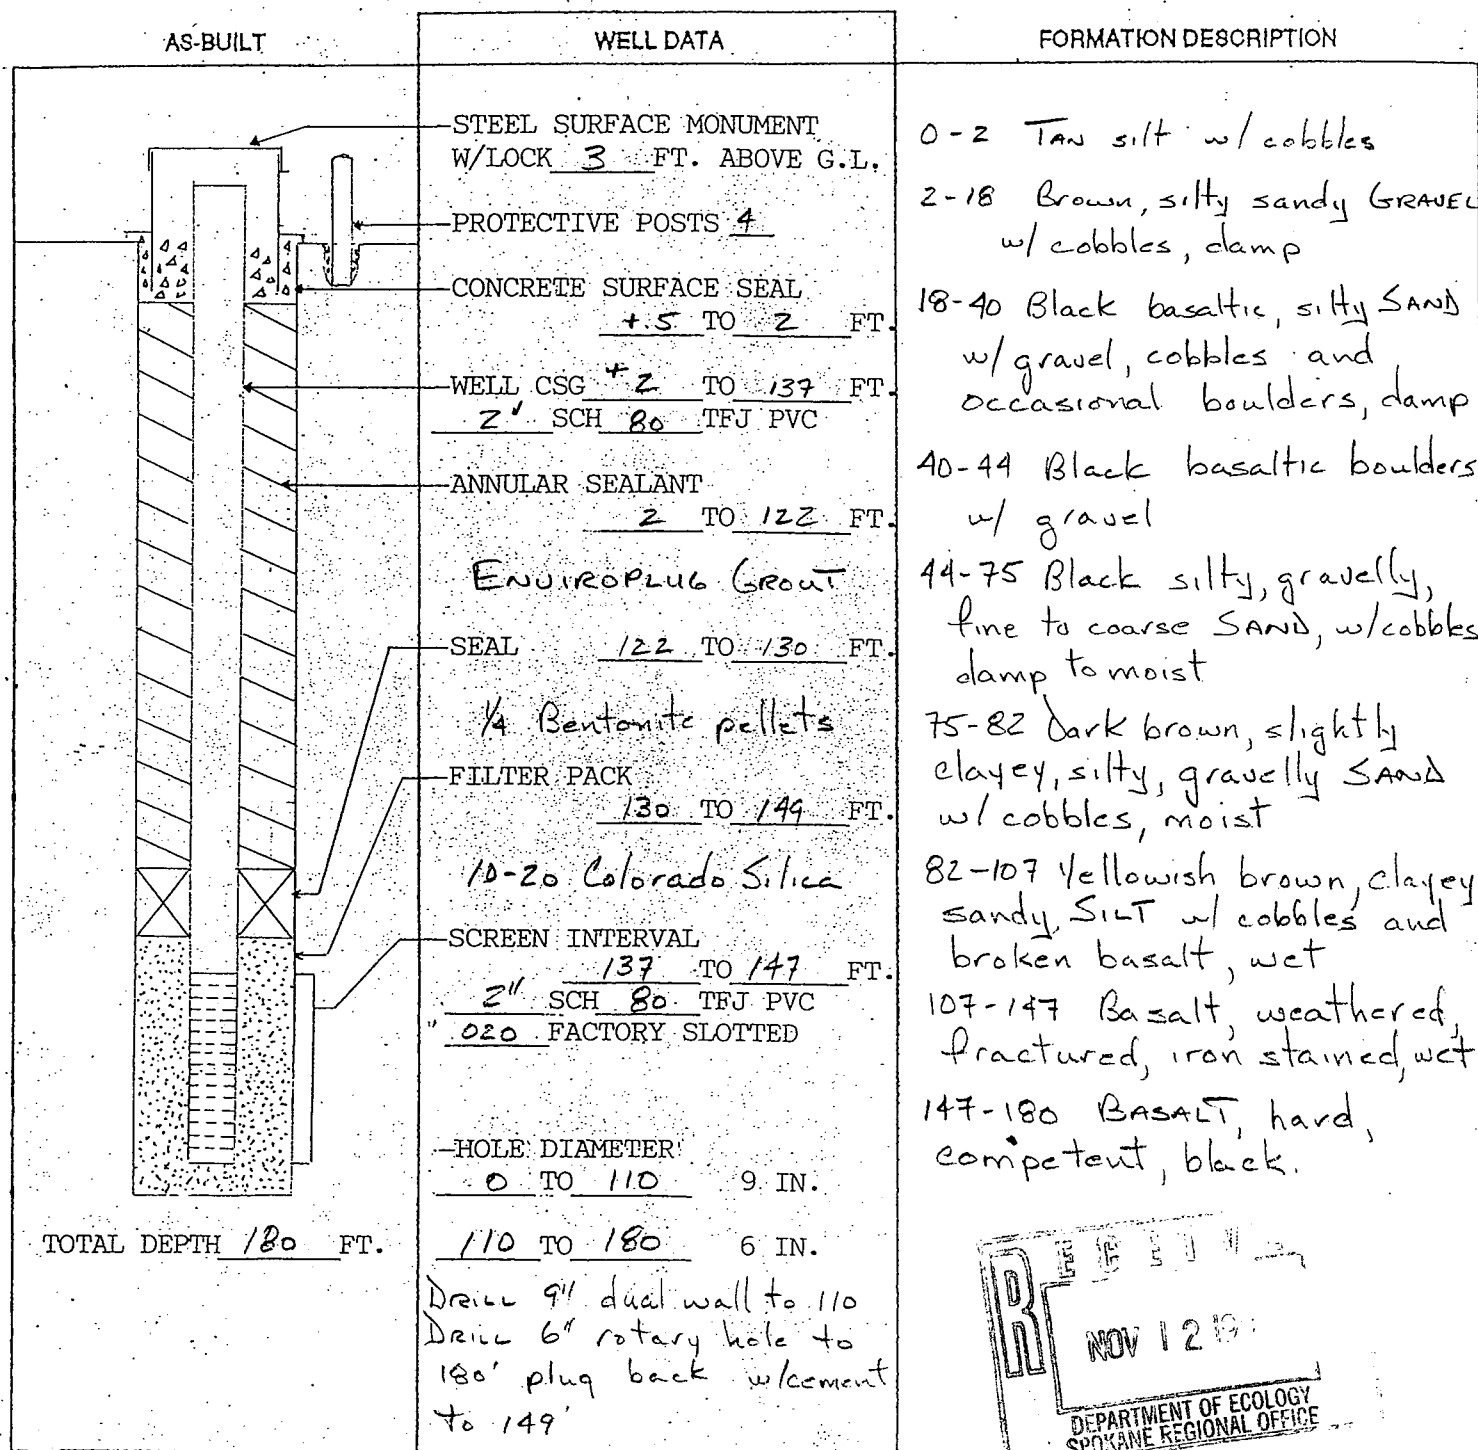 AS-BUILT
WELL DATA
FORMATION DESCRIPTION
STEEL SURFACE MONUMENT
W/LOCK 3 FT. ABOVE G.L.
PROTECTIVE POSTS 4
CONCRETE SURFACE SEAL
+.5 TO 2 FT.
WELL CSG +2 TO 137 FT.
2" SCH 80 TFJ PVC
ANNULAR SEALANT
2 TO 122 FT.
ENVIROPLUG GROUT
SEAL 122 TO 130 FT.
1/4 Bentonite pellets
FILTER PACK
130 TO 149 FT.
10-20 Colorado Silica
SCREEN INTERVAL
137 TO 147 FT.
2" SCH 80 TFJ PVC
".020 FACTORY SLOTTED
HOLE DIAMETER
0 TO 110 9 IN.
110 TO 180 6 IN.
DRILL 9" dual wall to 110
DRILL 6" rotary hole to
180' plug back w/cement
to 149'
TOTAL DEPTH 180 FT.
0-2 TAN silt w/ cobbles
2-18 Brown, silty sandy GRAVEL
w/ cobbles, damp
18-40 Black basaltic, silty SAND
w/ gravel, cobbles and
occasional boulders, damp
40-44 Black basaltic boulders
w/ gravel
44-75 Black silty, gravelly,
fine to coarse SAND, w/cobbles
damp to moist
75-82 Dark brown, slightly
clayey, silty, gravelly SAND
w/ cobbles, moist
82-107 Yellowish brown, clayey
sandy SILT w/ cobbles and
broken basalt, wet
107-147 Basalt, weathered,
fractured, iron stained, wet
147-180 BASALT, hard,
competent, black.
NOV 12
DEPARTMENT OF ECOLOGY
SPOKANE REGIONAL OFFICE